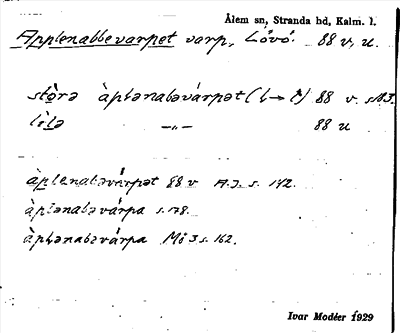 Ålem sn, Stranda hd, Kalm. l.
Applenabbevarpet varp, Lövö. 88 v, u.
stòrə àplənabəvárpət (l→ɫ) 88 v s. 183.
lìlə —„— 88 u
àplenabəvárpət 88 v A.J. s. 142.
àplənabəvárpa s. 178.
àplənabəvárpa Mö 3 s. 162.
Ivar Modéer 1929